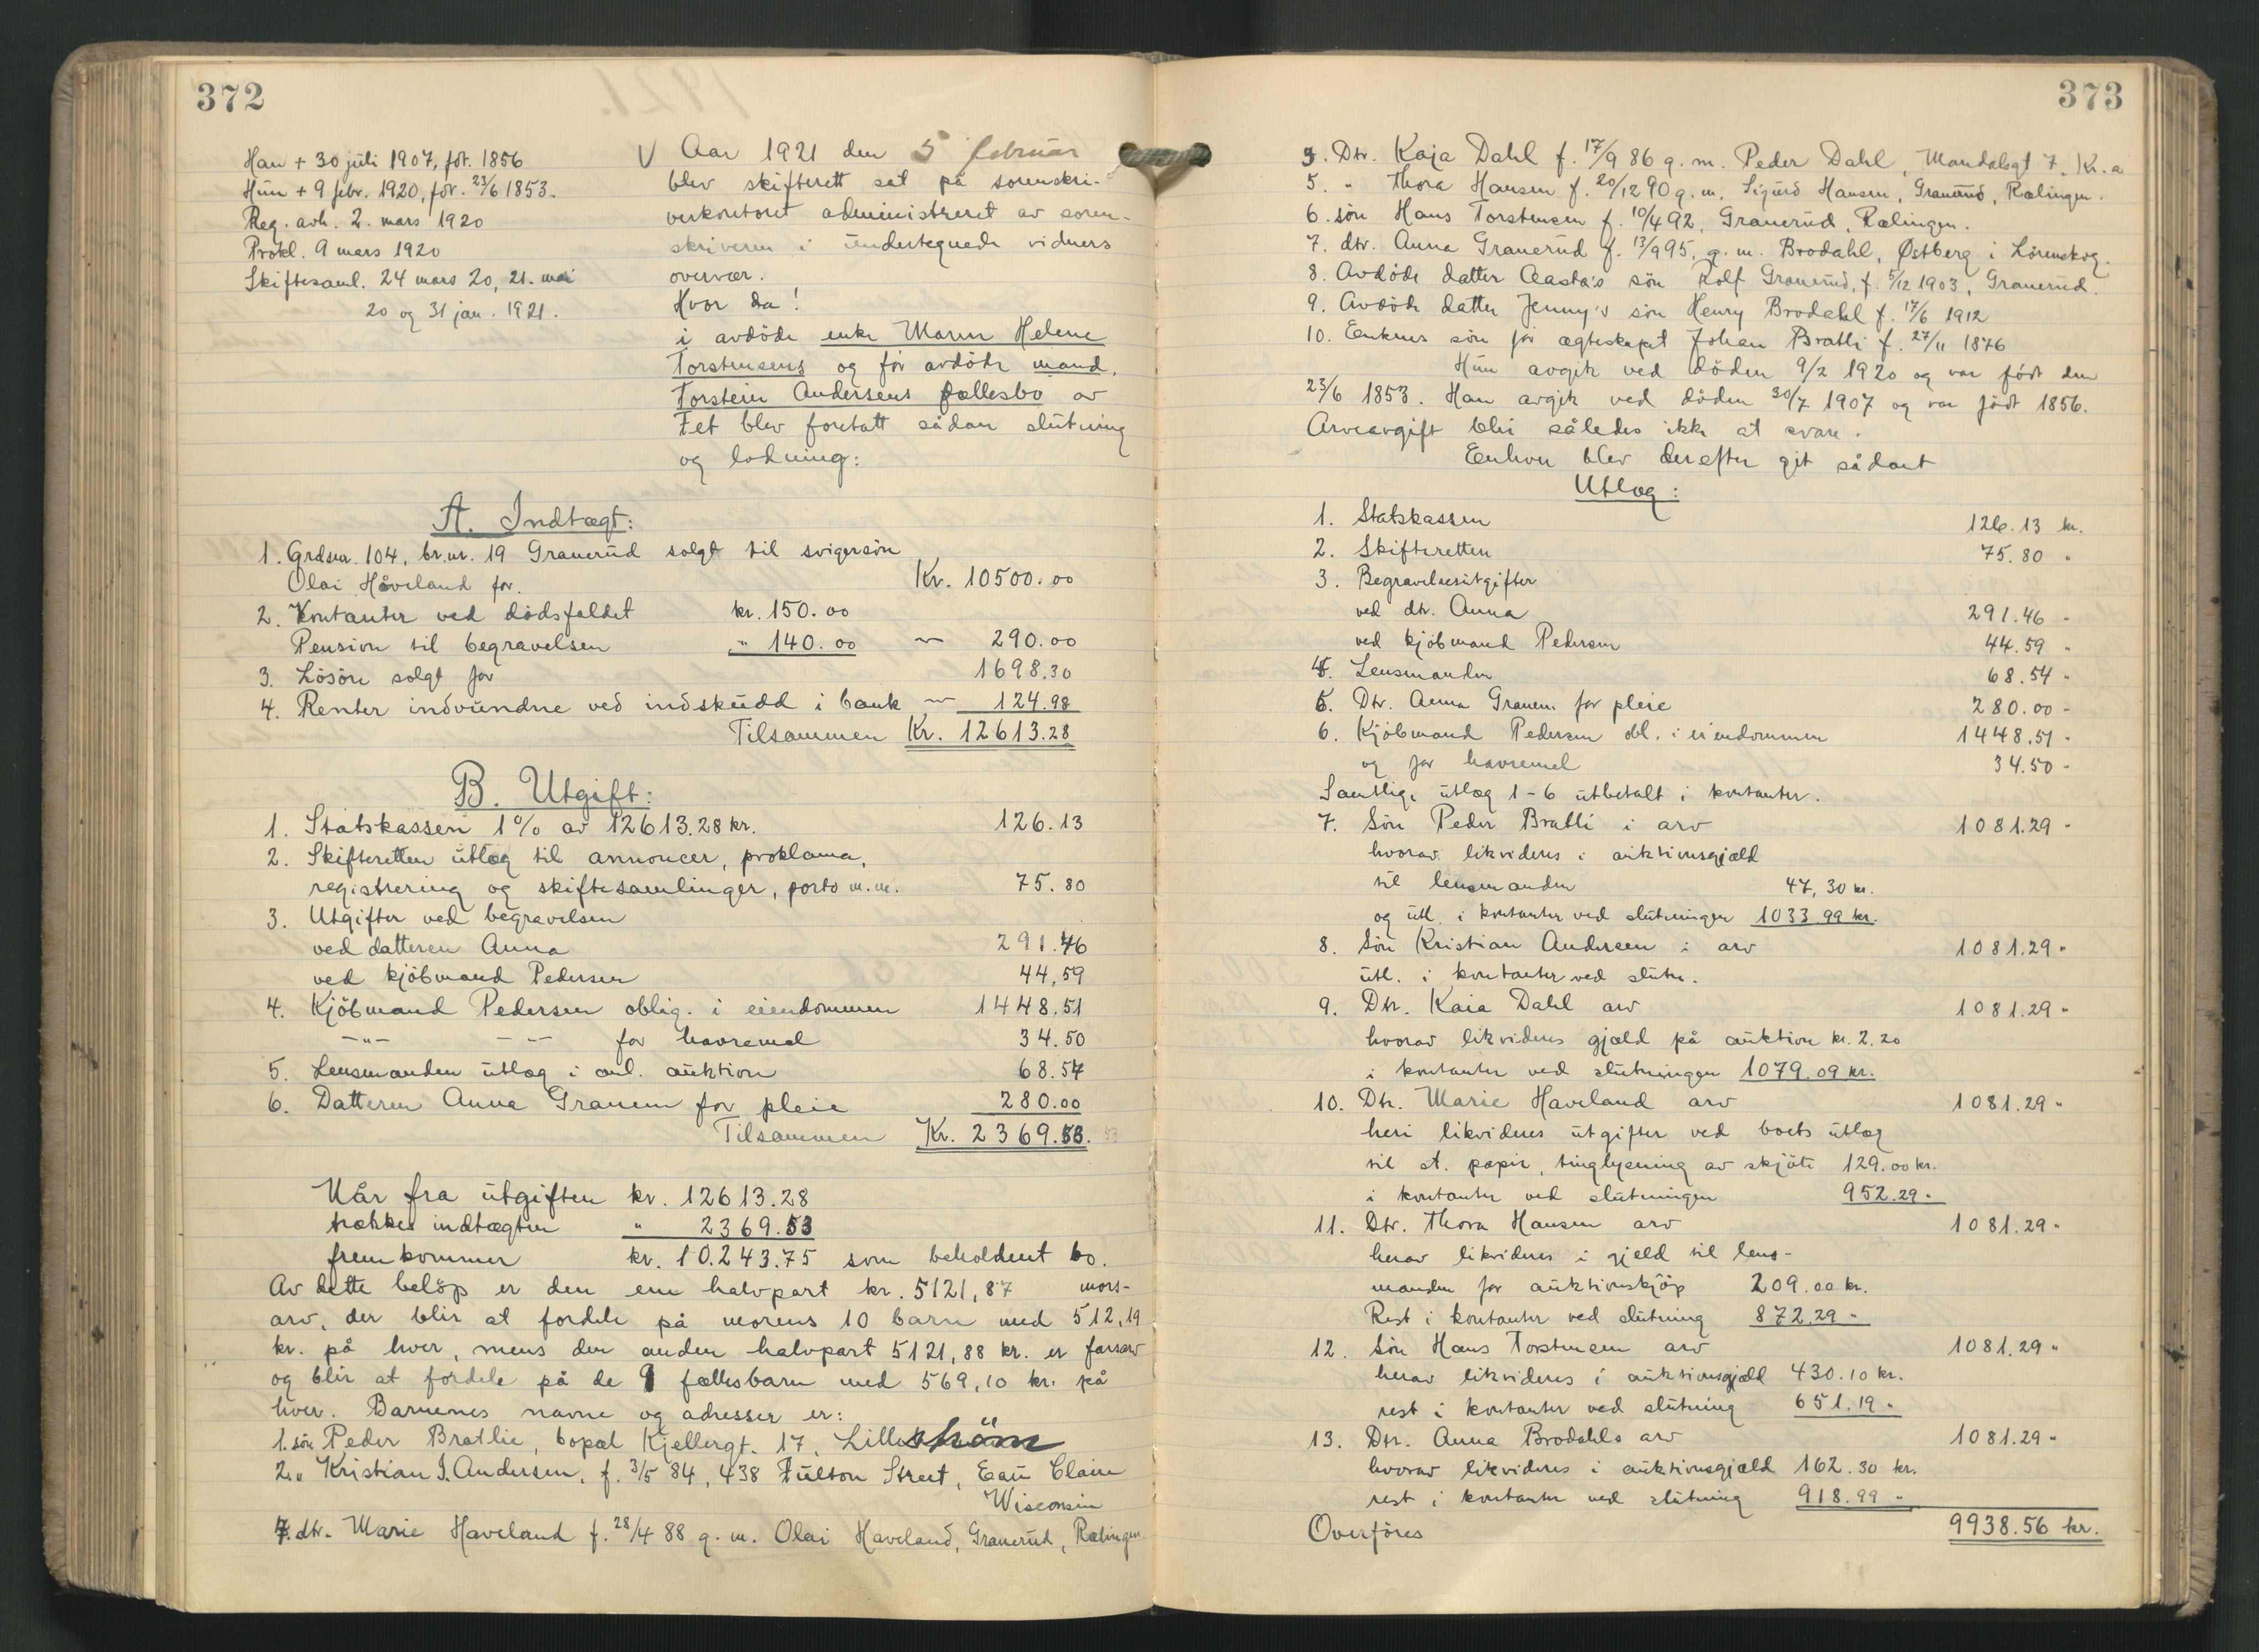 372
Han + 30 juli 1907, föt. 1856
Hun + 9 febr. 1920, för. 23/6 1853.
Reg. avh. 2. mars 1920
Prokl. 9 mars 1920
Skiftesaml. 24 mars 20, 21. mai
20 og 31 jan. 1921.
V Aar 1921 den 5 februar
blev skifterett sat på sorenskri-
verkontoret administreret av soren-
skriveren i undertegnede vidners
overvær.
Hvor da!
i avdöde enke Maren Helene
Torstensens og för avdöde mand,
Torstein Andersens fællesbo av
Fet blev foretatt sådan slutning
og lodning:
A. Indtægt:
1. Grdsnr. 104, br.nr. 19 Granerud solgt til svigersön
Olai Håveland for. Kr. 10500.00
2. Kontanter ved dödsfaldet kr. 150.00
Pension til begravelsen " 140.00 ~ 290.00
3. Lösöre solgt for 1698.30
4. Renter indvundne ved indskudd i bank ~ 124.98
Tilsammen Kr. 12613.28
B. Utgift:
1. Statskassen 1% av 12613.28 kr. 126.13
2. Skifteretten utlæg til annoncer, proklama,
registrering og skiftesamlinger, porto m.m. 75.80
3. Utgifter ved begravelsen
ved datteren Anna 291.46
ved kjöbmand Pedersen 44,59
4. Kjöbmand Pedersen oblig. i eiendommen 1448.51
-"- -"- for havremel 34.50
5. Lensmanden utlæg i anl. auktion 68.54
6. Datteren Anna Graneru for pleie 280.00
Tilsammen Kr. 2369.53. 53
Når fra utgiften kr. 12613.28
trækkes indtægten " 2369.53
fremkommer kr. 10.243.75 som beholdent bo.
Av dette belöp er den ene halvpart kr. 5121,87 mors-
arv, der blir at fordele på morens 10 barn med 512,19
kr. på hver, mens den anden halvpart 5121,88 kr. er farsarv
og blir at fordele på de 9 fællesbarn med 569,10 kr. på
hver. Barnenes navne og adresser er:
1. sön Peder Bratlie, bopæl Kjellergt. 17, Lilleström
2. " Kristian J. Andersen, f. 3/5 84, 438 Fulton Street, Eau Claire
Wisconsin
4. dtr. Marie Haveland f. 28/4 88 g. m. Olai Haveland, Granerud, Rælingen
373
3. Dtr. Kaja Dahl f. 17/9 86 g. m. Peder Dahl, Mandalsgt 7, Kr.a
5. " Thora Hansen f. 20/12 90 g. m. Sigurd Hansen, Granerud, Rælingen.
6. sön Hans Torstensen f. 10/4 92, Granerud, Rælingen.
7. dtr. Anna Granerud f. 13/9 95, g. m. Brodahl, Østberg i Lörenskog.
8. Avdöde datter Aasta's sön Rolf Granerud, f. 5/12 1903, Granerud.
9. Avdöde datter Jenny's sön Henry Brodahl f. 17/6 1912
10. Enkens sön för ægteskapet Johan Bratli f. 27/11 1876
Hun avgik ved döden 9/2 1920 og var födt den
23/6 1853. Han avgik ved döden 30/7 1907 og var födt 1856.
Arveavgift blir således ikke at svare.
Enhver blev derefter git sådant
Utlæg:
1. Statskassen 126.13 kr.
2. Skifteretten 75.80 "
3. Begravelsesutgifter
ved dtr. Anna 291.46 "
ved kjöbmand Pedersen 44.59 "
4. Lensmanden 68.54 "
5. Dtr. Anna Graneru for pleie 280.00 "
6. Kjöbmand Pedersen obl. i eiendommen 1448.51 "
og for havremel 34.50 "
Samtlige utlæg 1-6 utbetalt i kontanter.
7. Sön Peder Bratli i arv 1081.29 "
hvorav likvideres i auktionsgjæld
til lensmanden 47,30 kr.
og utl. i kontanter ved slutningen 1033.99 kr.
8. Sön Kristian Andersen i arv 1081.29 "
utl. i kontanter ved slutn.
9. Dtr. Kaia Dahl arv 1081.29 "
hvorav likvideres gjæld på auktion kr. 2.20
i kontanter ved slutningen 1079.09 kr.
10. Dtr. Marie Haveland arv 1081.29 "
heri likvideres utgifter ved boets utlæg
til st. papir, tinglysning av skjöte 129.00 kr.
i kontanter ved slutningen 952.29 "
11. Dtr. Thora Hansen arv 1081.29 "
herav likvideres i gjeld til lens-
manden for auktionskjöp 209.00 kr.
Rest i kontanter ved slutning 872.29 "
12. Sön Hans Torstensen arv 1081.29 "
herav likvideres i auktionsgjæld 430.10 kr.
rest i kontanter ved slutning 651.19 "
13. Dtr. Anna Brodahls arv 1081.29 "
hvorav likvideres i auktionsgjæld 162.30 kr.
rest i kontanter ved slutning 918.99 "
Overföres 9938.56 kr.